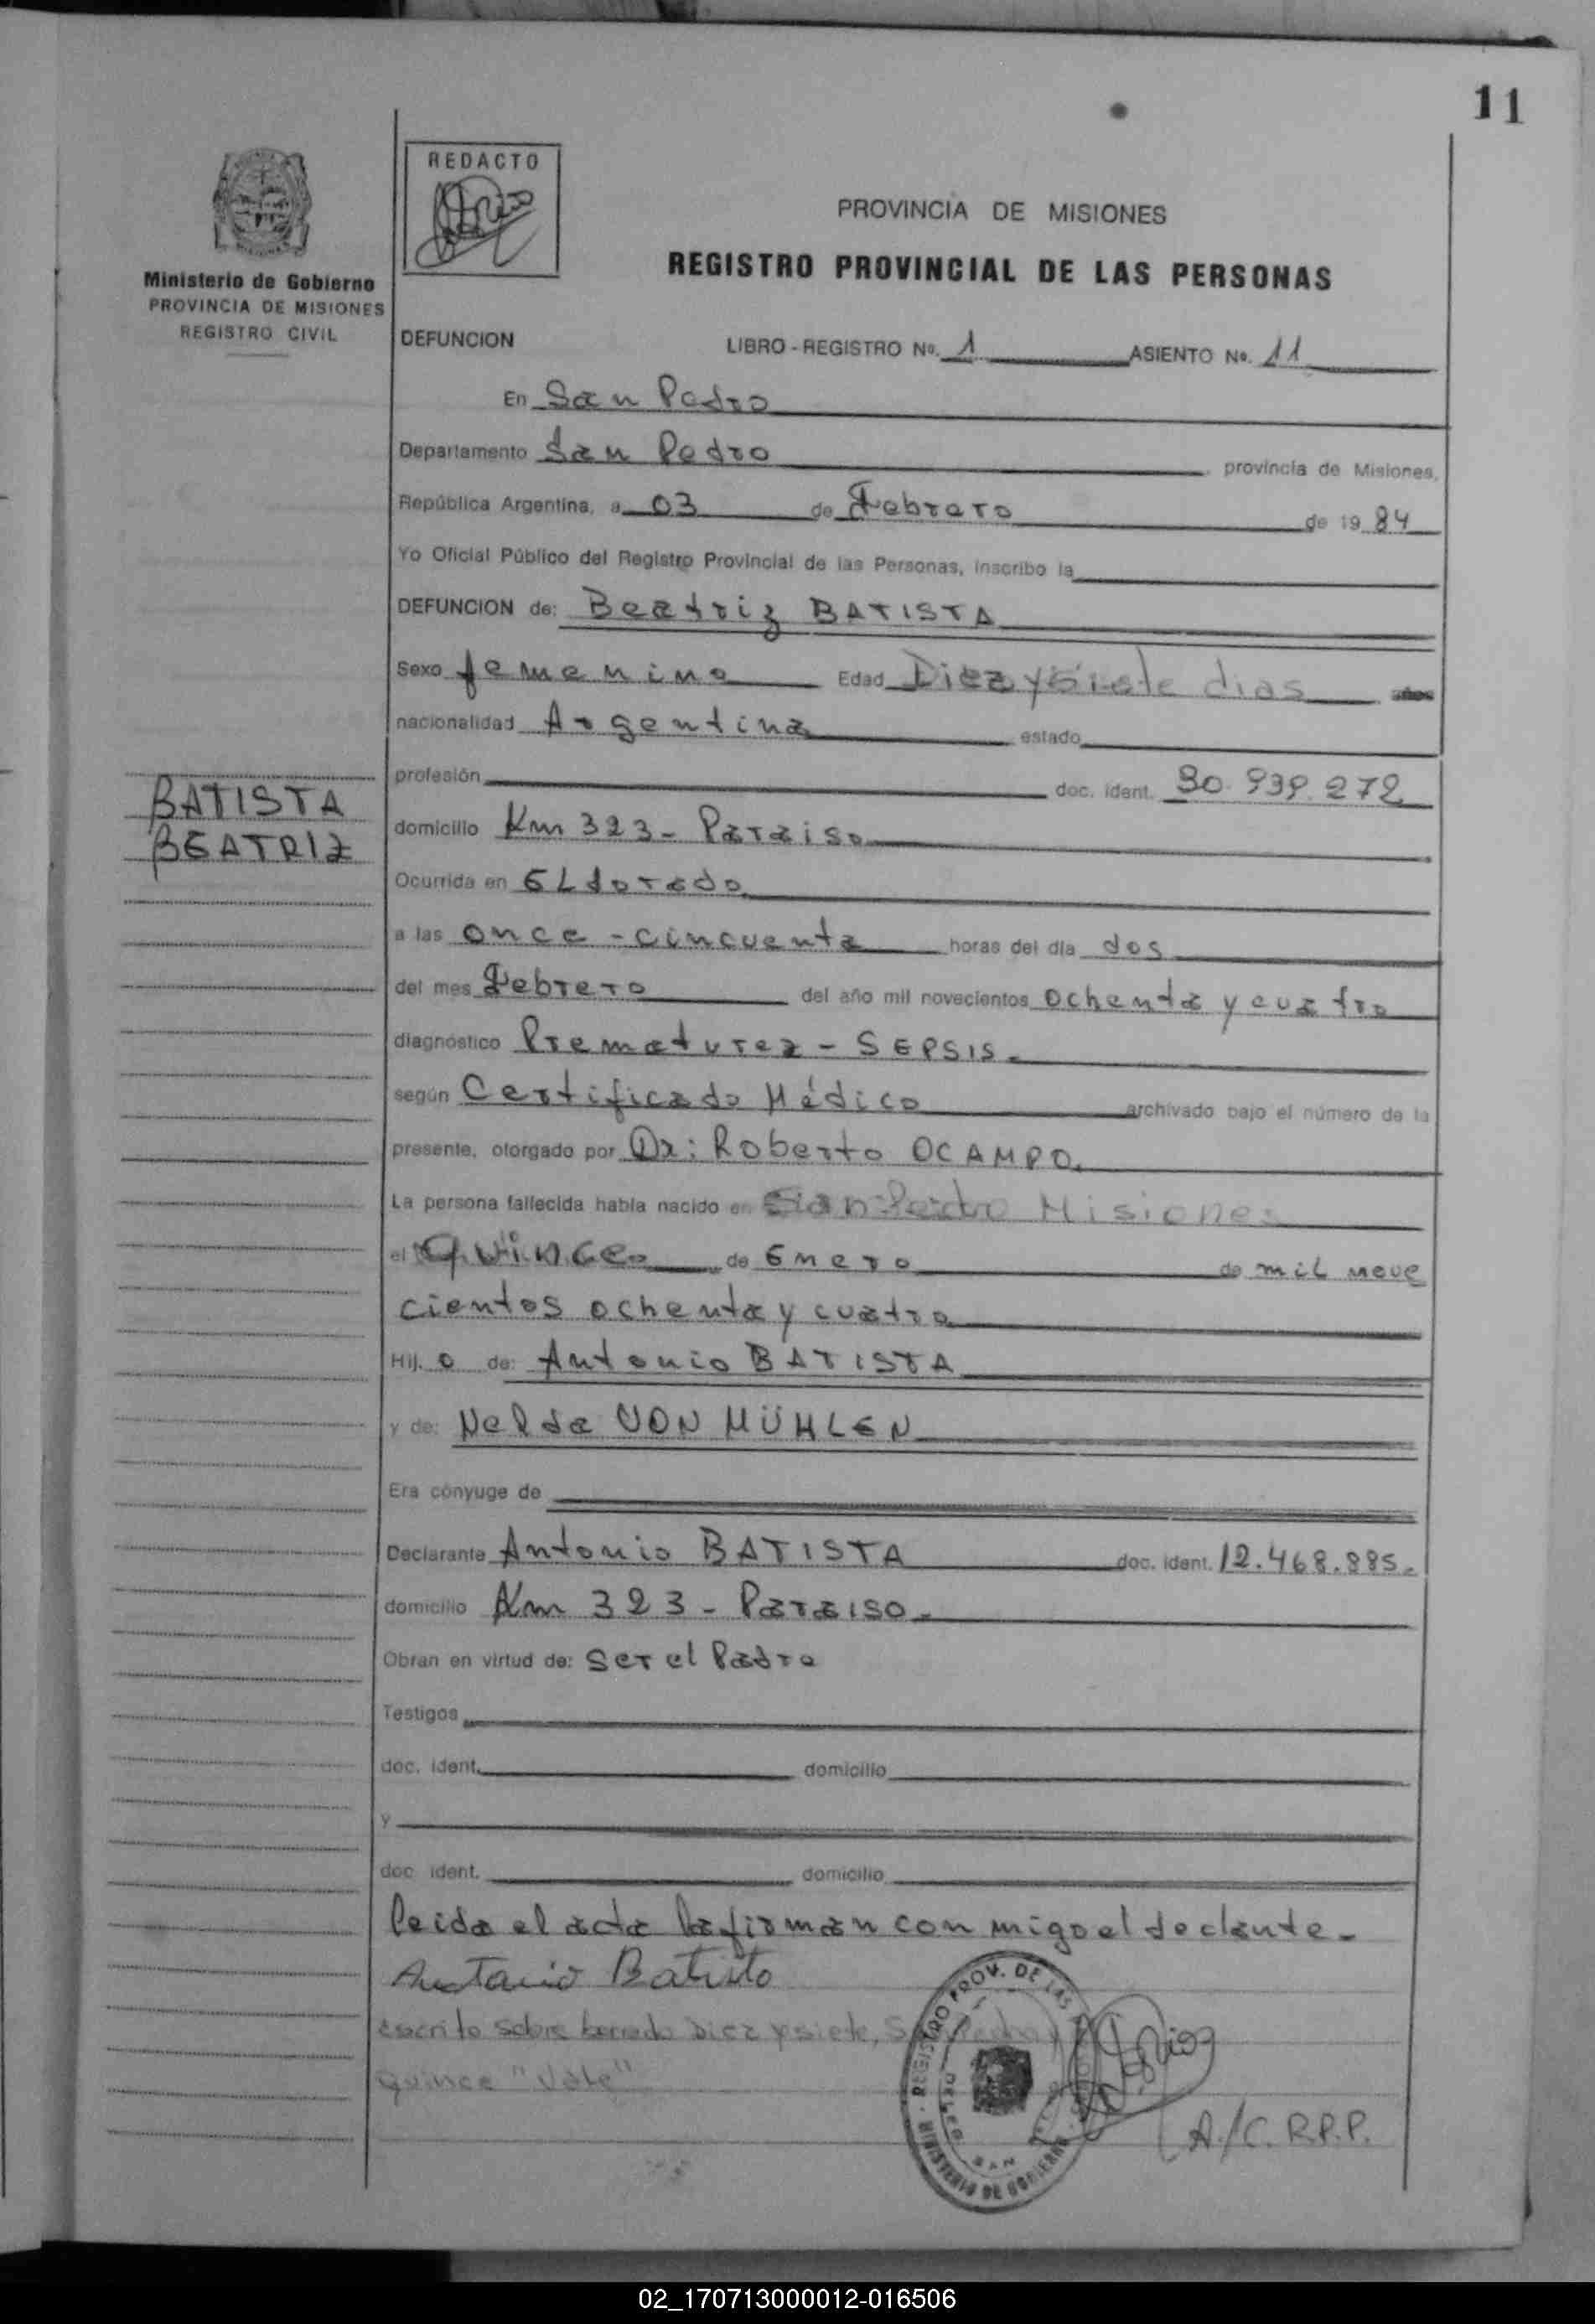 11
REDACTO
PROVINCIA DE MISIONES
REGISTRO PROVINCIAL DE LAS PERSONAS
Ministerio de Gobierno
PROVINCIA DE MISIONES
REGISTRO CIVIL
DEFUNCION LIBRO - REGISTRO No. 1 ASIENTO No. 11
En San Pedro
Departamento San Pedro provincia de Misiones,
República Argentina, a 03 de Febrero de 19 84
Yo Oficial Público del Registro Provincial de las Personas, inscribo la
DEFUNCION de: Beatriz BATISTA
Sexo femenino Edad Diez y siete dias años
nacionalidad Argentina estado
profesión doc. ident. 30.939.272
BATISTA
BEATRIZ
domicilio Km 323 - Paraiso
Ocurrida en ELdorado
a las once - cincuenta horas del día dos
del mes Febrero del año mil novecientos ochenta y cuatro
diagnóstico Prematurez - SEPSIS.
según Certificado Médico archivado bajo el número de la
presente, otorgado por Dr: Roberto OCAMPO.
La persona fallecida había nacido en San Pedro Misiones
el Quince de Enero de mil nove
cientos ochenta y cuatro
Hij. o de: Antonio BATISTA
y de: Nelda VON MÜHLEN
Era cónyuge de
Declarante Antonio BATISTA doc. ident. 12.468.885.
domicilio Km 323 - Paraiso.
Obran en virtud de: Ser el Padre
Testigos
doc. ident. domicilio
y
doc ident. domicilio
leida el acta la firman con migo el declante.
Antonio Batisto
escrito sobre borrado Diez y siete, San Pedro y
quince "Vale"
REGISTRO PROV. DE LAS
MINISTERIO DE GOBIERNO
SAN
A./C. R.P.P.
02_170713000012-016506